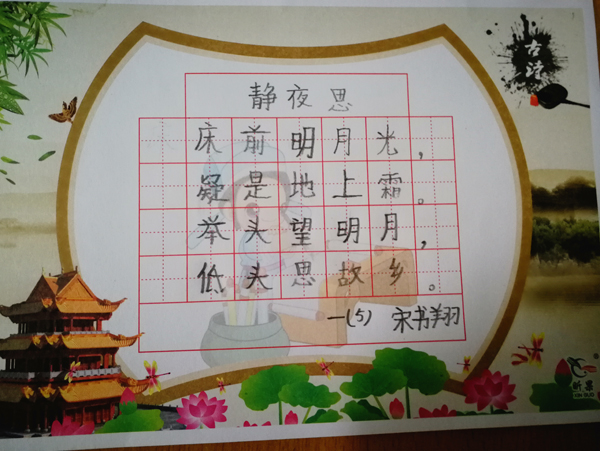 古诗
静夜思
床前明月光，
疑是地上霜。
举头望明月，
低头思故乡。
一(5) 宋书翔